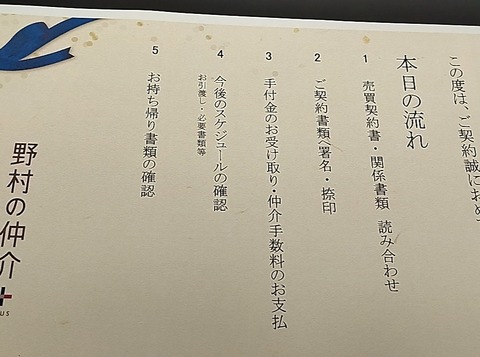 この度は、ご契約誠におめ
本日の流れ
1 売買契約書・関係書類 読み合わせ
2 ご契約書類へ署名・捺印
3 手付金のお受け取り・仲介手数料のお支払
4 今後のスケジュールの確認
お引渡し・必要書類等
5 お持ち帰り書類の確認
野村の仲介+
US